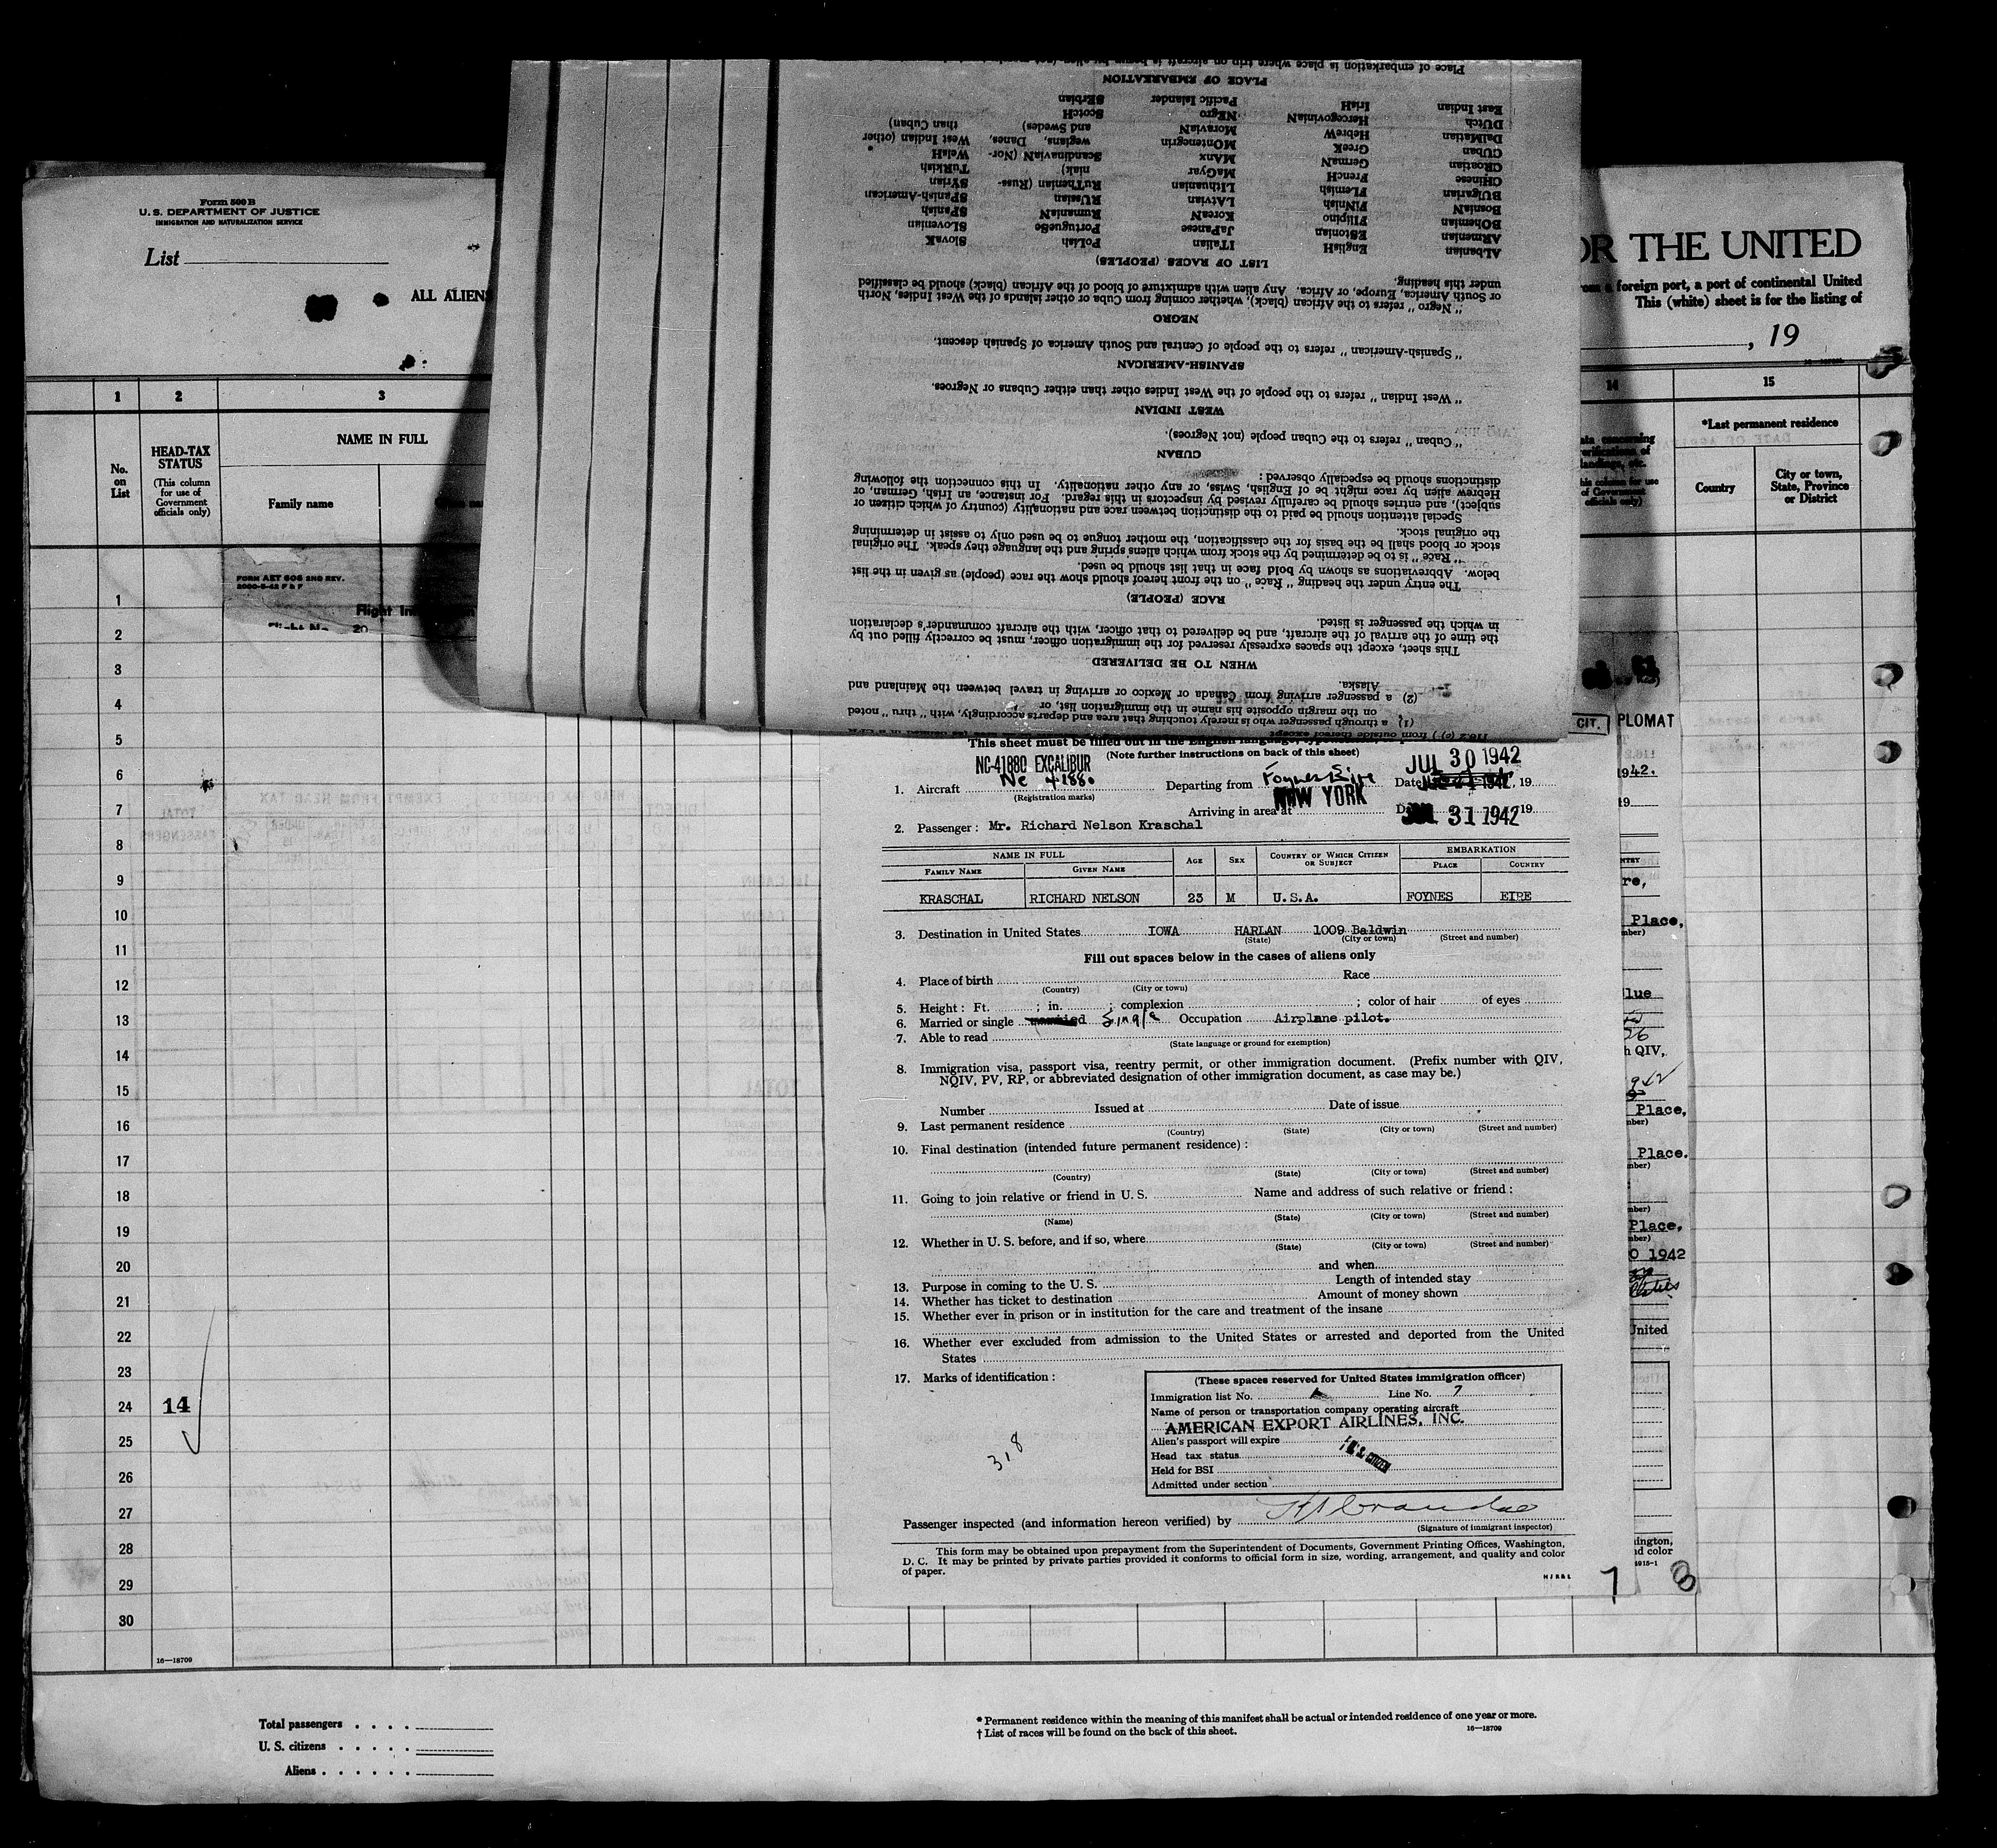 Form 500 B
U. S. DEPARTMENT OF JUSTICE
IMMIGRATION AND NATURALIZATION SERVICE
List
ALL ALIENS
OR THE UNITED
foreign port, a port of continental United
This (white) sheet is for the listing of
, 19
1 2 3 14 15
No. on List
HEAD-TAX STATUS
(This column for use of Government officials only)
NAME IN FULL
Family name
*Last permanent residence
Country
City or town, State, Province or District
FORM AET 606 2ND REV.
1
2
3
4
5
6
7
8
9
10
11
12
13
14
15
16
17
18
19
20
21
22
23
24 14
25
26
27
28
29
30
16—18709
Total passengers . . . .
U. S. citizens . . . . .
Aliens . . . . . .
* Permanent residence within the meaning of this manifest shall be actual or intended residence of one year or more.
† List of races will be found on the back of this sheet.
16—18709
(1) a through passenger who is merely touching that area and departs accordingly, with "thru" noted
on the margin opposite his name in the immigration list, or
(2) a passenger arriving from Canada or Mexico or arriving in travel between the Mainland and
Alaska.
WHEN TO BE DELIVERED
This sheet, except the spaces expressly reserved for the immigration officer, must be correctly filled out by
the time of the arrival of the aircraft, and be delivered to that officer, with the aircraft commander's declaration
in which the passenger is listed.
RACE (PEOPLE)
The entry under the heading "Race" on the front hereof should show the race (people) as given in the list
below. Abbreviations as shown by bold face in that list should be used.
"Race" is to be determined by the stock from which aliens spring and the language they speak. The original
stock or blood shall be the basis for the classification, the mother tongue to be used only to assist in determining
the original stock.
Special attention should be paid to the distinction between race and nationality (country of which citizen or
subject), and entries should be carefully revised by inspectors in this regard. For instance, an Irish, German, or
Hebrew alien by race might be of English, Swiss, or any other nationality. In this connection the following
distinctions should be especially observed:
CUBAN
"Cuban" refers to the Cuban people (not Negroes).
WEST INDIAN
"West Indian" refers to the people of the West Indies other than either Cubans or Negroes.
SPANISH-AMERICAN
"Spanish-American" refers to the people of Central and South America of Spanish descent.
NEGRO
"Negro" refers to the African (black), whether coming from Cuba or other islands of the West Indies, North
or South America, Europe, or Africa. Any alien with admixture of blood of the African (black) should be classified
under this heading.
LIST OF RACES (PEOPLES)
ALbanian EnglisH ITalian PoLish SlovaK
ARmenian EStonian JaPanese PortugueSe SLovenian
BOhemian FIlipino KoreaN RumaniaN SPanish
BosniaN FiNnish LAtvian RUssian SPanish-American
BUlgarian FLemish LIthuanian RuThenian (Russ- SYrian
CHinese FrencH MaGyar niak) TuRkish
CRoatian GermaN MAnx ScandinaviaN (Nor- WelsH
CUban GreeK MOntenegrin wegians, Danes, West Indian (other
DalMatian HebreW MoraviaN and Swedes) than Cuban)
DUtch HercegoviniaN NEgro ScotcH
East Indian IrisH Pacific Islander SErbian
PLACE OF EMBARKATION
This sheet must be filled out in the English language
(Note further instructions on back of this sheet)
NC-41880 EXCALIBUR
1. Aircraft Nc 41880 Departing from Foynes Eire Date JUL 30 1942, 19
(Registration marks)
Arriving in area at NEW YORK JUL 31 1942 19
2. Passenger: Mr. Richard Nelson Kraschal
NAME IN FULL AGE SEX COUNTRY OF WHICH CITIZEN OR SUBJECT EMBARKATION
FAMILY NAME GIVEN NAME PLACE COUNTRY
KRASCHAL RICHARD NELSON 23 M U.S.A. FOYNES EIRE
3. Destination in United States IOWA HARLAN 1009 Baldwin
(State) (City or town) (Street and number)
Fill out spaces below in the cases of aliens only
4. Place of birth Race
(Country) (City or town)
5. Height: Ft. ; in. ; complexion ; color of hair of eyes
6. Married or single Single Occupation Airplane pilot.
7. Able to read
(State language or ground for exemption)
8. Immigration visa, passport visa, reentry permit, or other immigration document. (Prefix number with QIV,
NQIV, PV, RP, or abbreviated designation of other immigration document, as case may be.)
Number Issued at Date of issue
9. Last permanent residence
(Country) (State) (City or town) (Street and number)
10. Final destination (intended future permanent residence):
(Country) (State) (City or town) (Street and number)
11. Going to join relative or friend in U. S. Name and address of such relative or friend:
(Name) (State) (City or town) (Street and number)
12. Whether in U. S. before, and if so, where
(State) (City or town) (Street and number)
and when
13. Purpose in coming to the U. S. Length of intended stay
14. Whether has ticket to destination Amount of money shown
15. Whether ever in prison or in institution for the care and treatment of the insane
16. Whether ever excluded from admission to the United States or arrested and deported from the United
States
17. Marks of identification:
318
(These spaces reserved for United States immigration officer)
Immigration list No. Line No. 7
Name of person or transportation company operating aircraft
AMERICAN EXPORT AIRLINES, INC.
Alien's passport will expire
Head tax status
Held for BSI
Admitted under section
Passenger inspected (and information hereon verified) by
(Signature of immigrant inspector)
This form may be obtained upon prepayment from the Superintendent of Documents, Government Printing Offices, Washington,
D. C. It may be printed by private parties provided it conforms to official form in size, wording, arrangement, and quality and color
of paper.
7 8
CIT. PLOMAT
Place,
h QIV,
Place,
Place.
Place,
0 1942